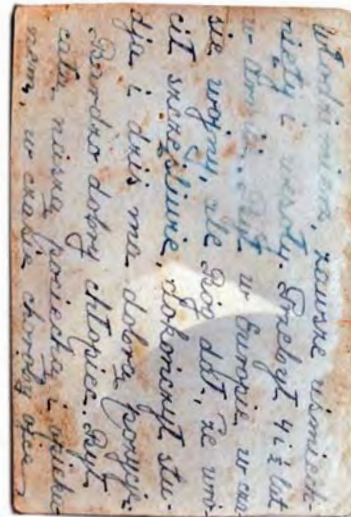 Włodzimierz, zawsze uśmiech-
nięty i wesoły. Przebył 4 i ½ lat
w armii. Był w Europie w cza
sie wojny, ale Bóg dał, że wró-
cił szczęśliwie, dokończył stu-
dja i dziś ma dobrą pozycję.
Bardzo dobry chłopiec. Był
całą naszą pociechą i opieku-
nem, w czasie choroby ojca